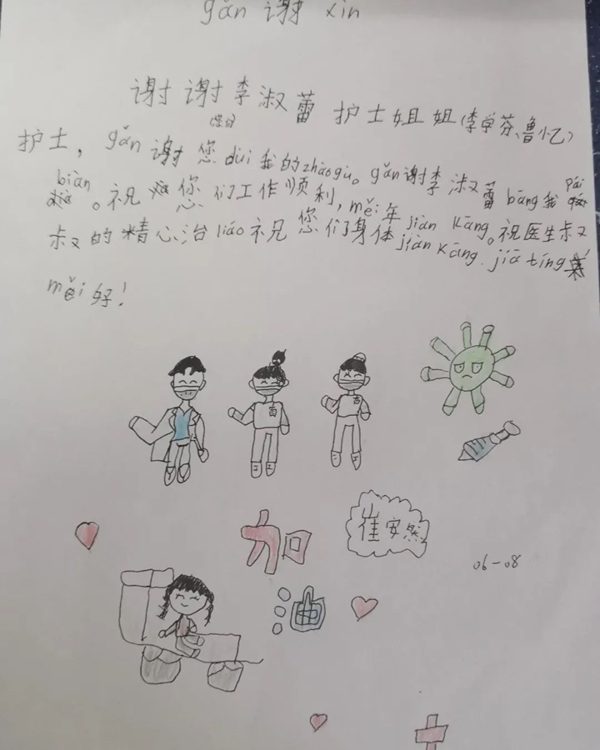 gǎn 谢 xìn
谢谢李淑蕾护士姐姐(李学芬、鲁小忆)
护士，gǎn谢您duì我的zhàogù。gǎn谢李淑蕾bāng我pái
biàn。祝您们工作顺利，měi年jiàn kāng。祝医生叔
叔的精心治liáo祝您们身体jiàn kāng.jiā tíng
měi好！
加
油
崔安然
06-08